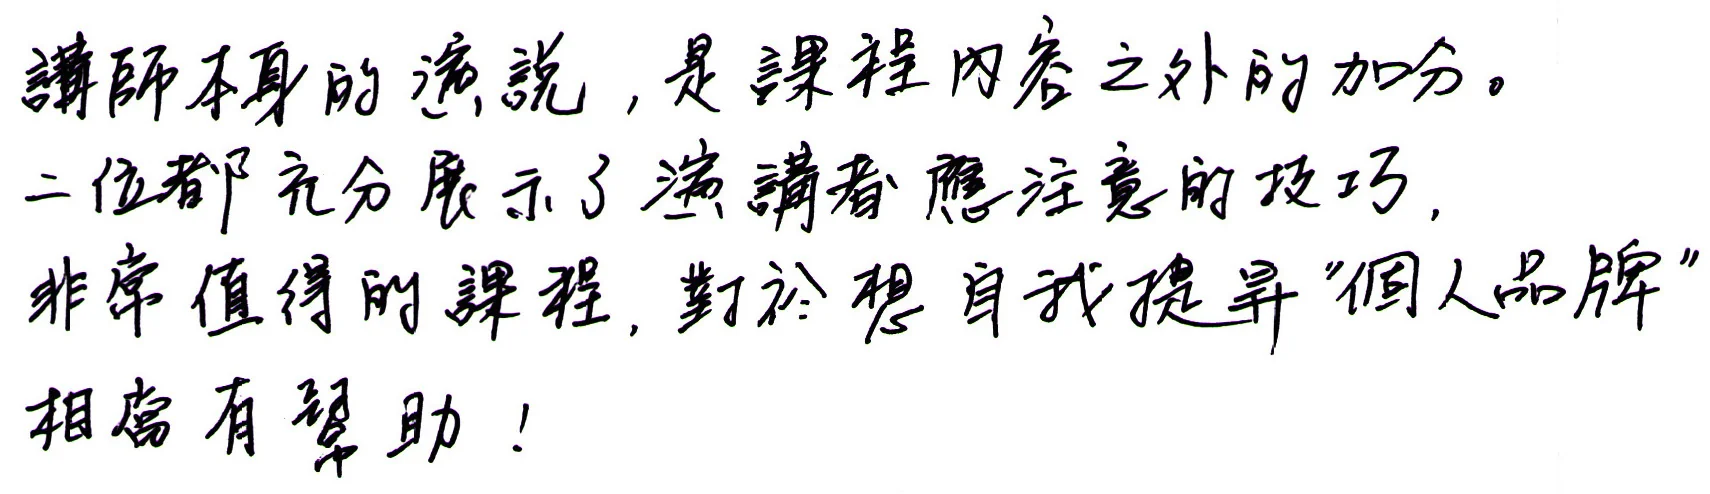 講師本身的演說,是課程內容之外的加分。
二位都充分展示了演講者應注意的技巧,
非常值得的課程,對於想自我提昇"個人品牌"
相當有幫助!